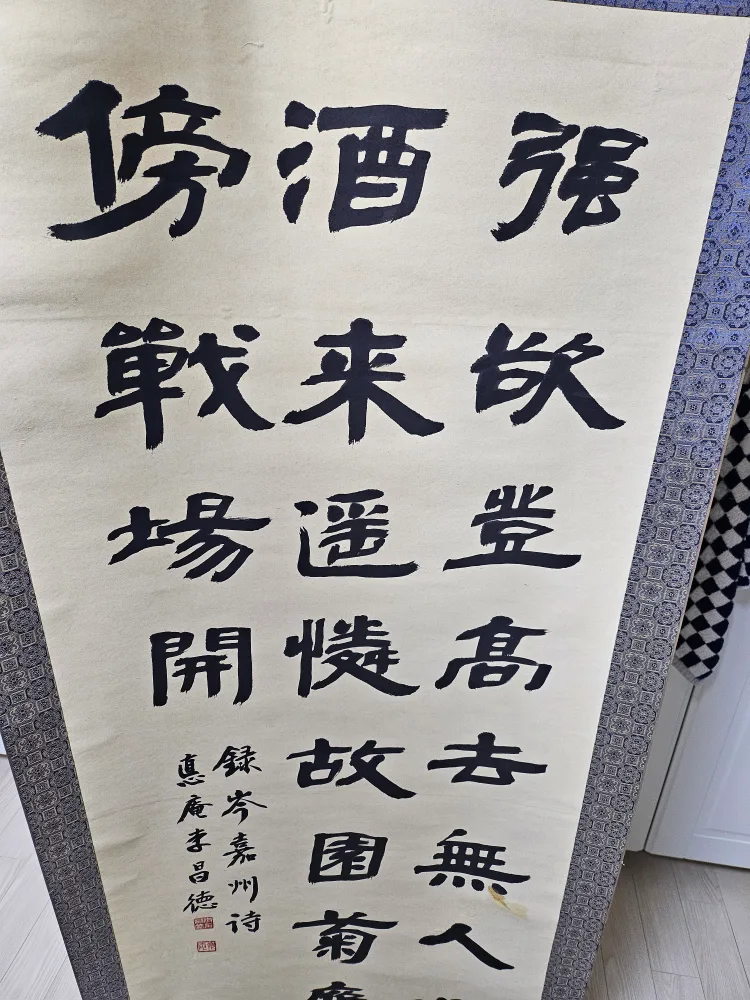 强欲登髙去無人
酒来遥憐故園菊
傍戰場開
録岑嘉州诗
悳庵李昌德